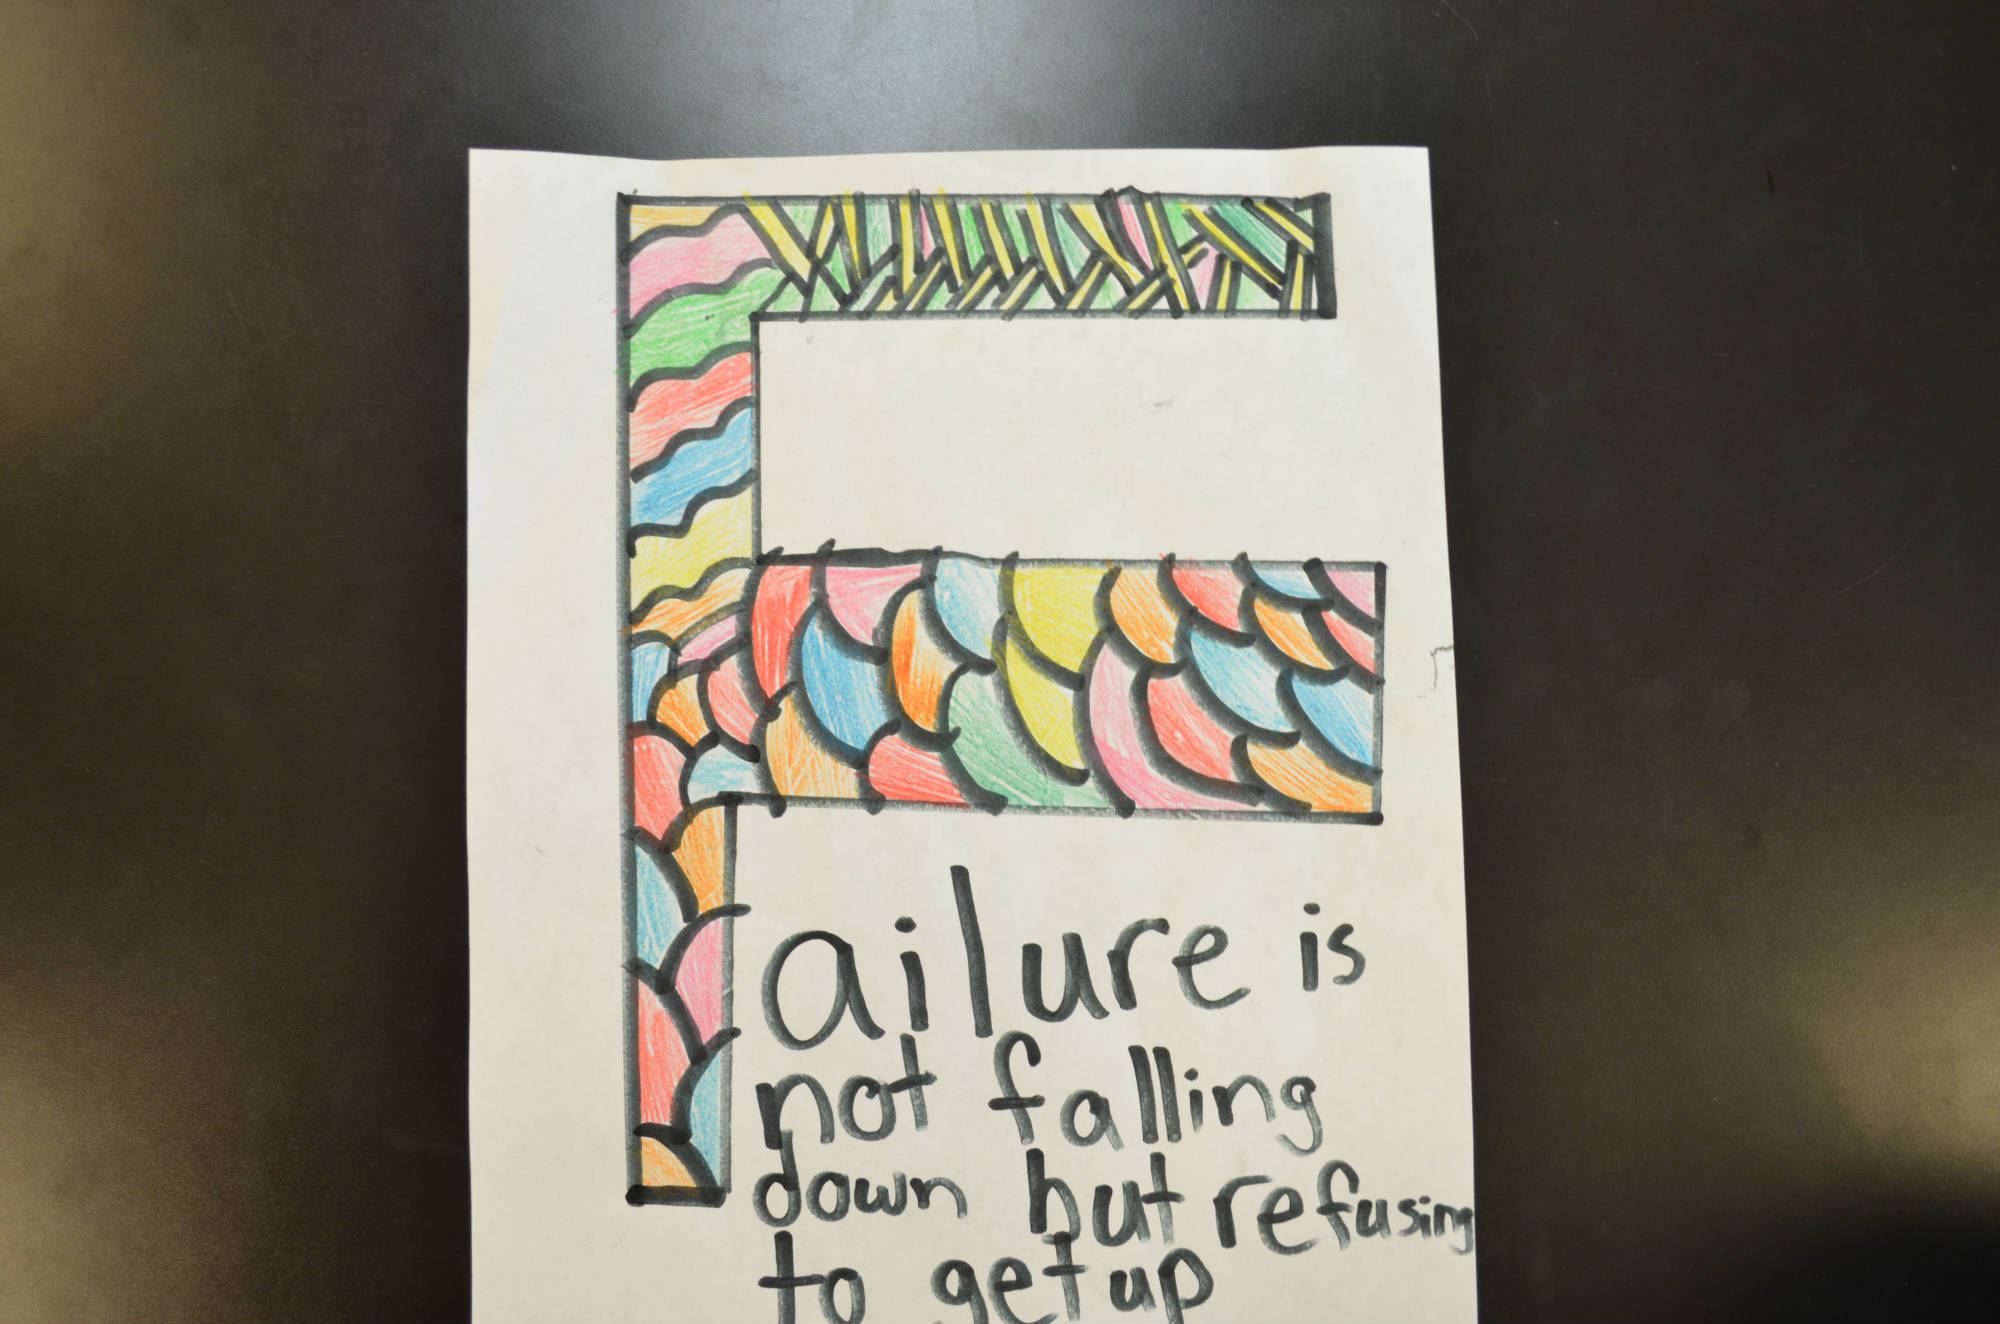 Failure is
not falling
down but refusing
to get up